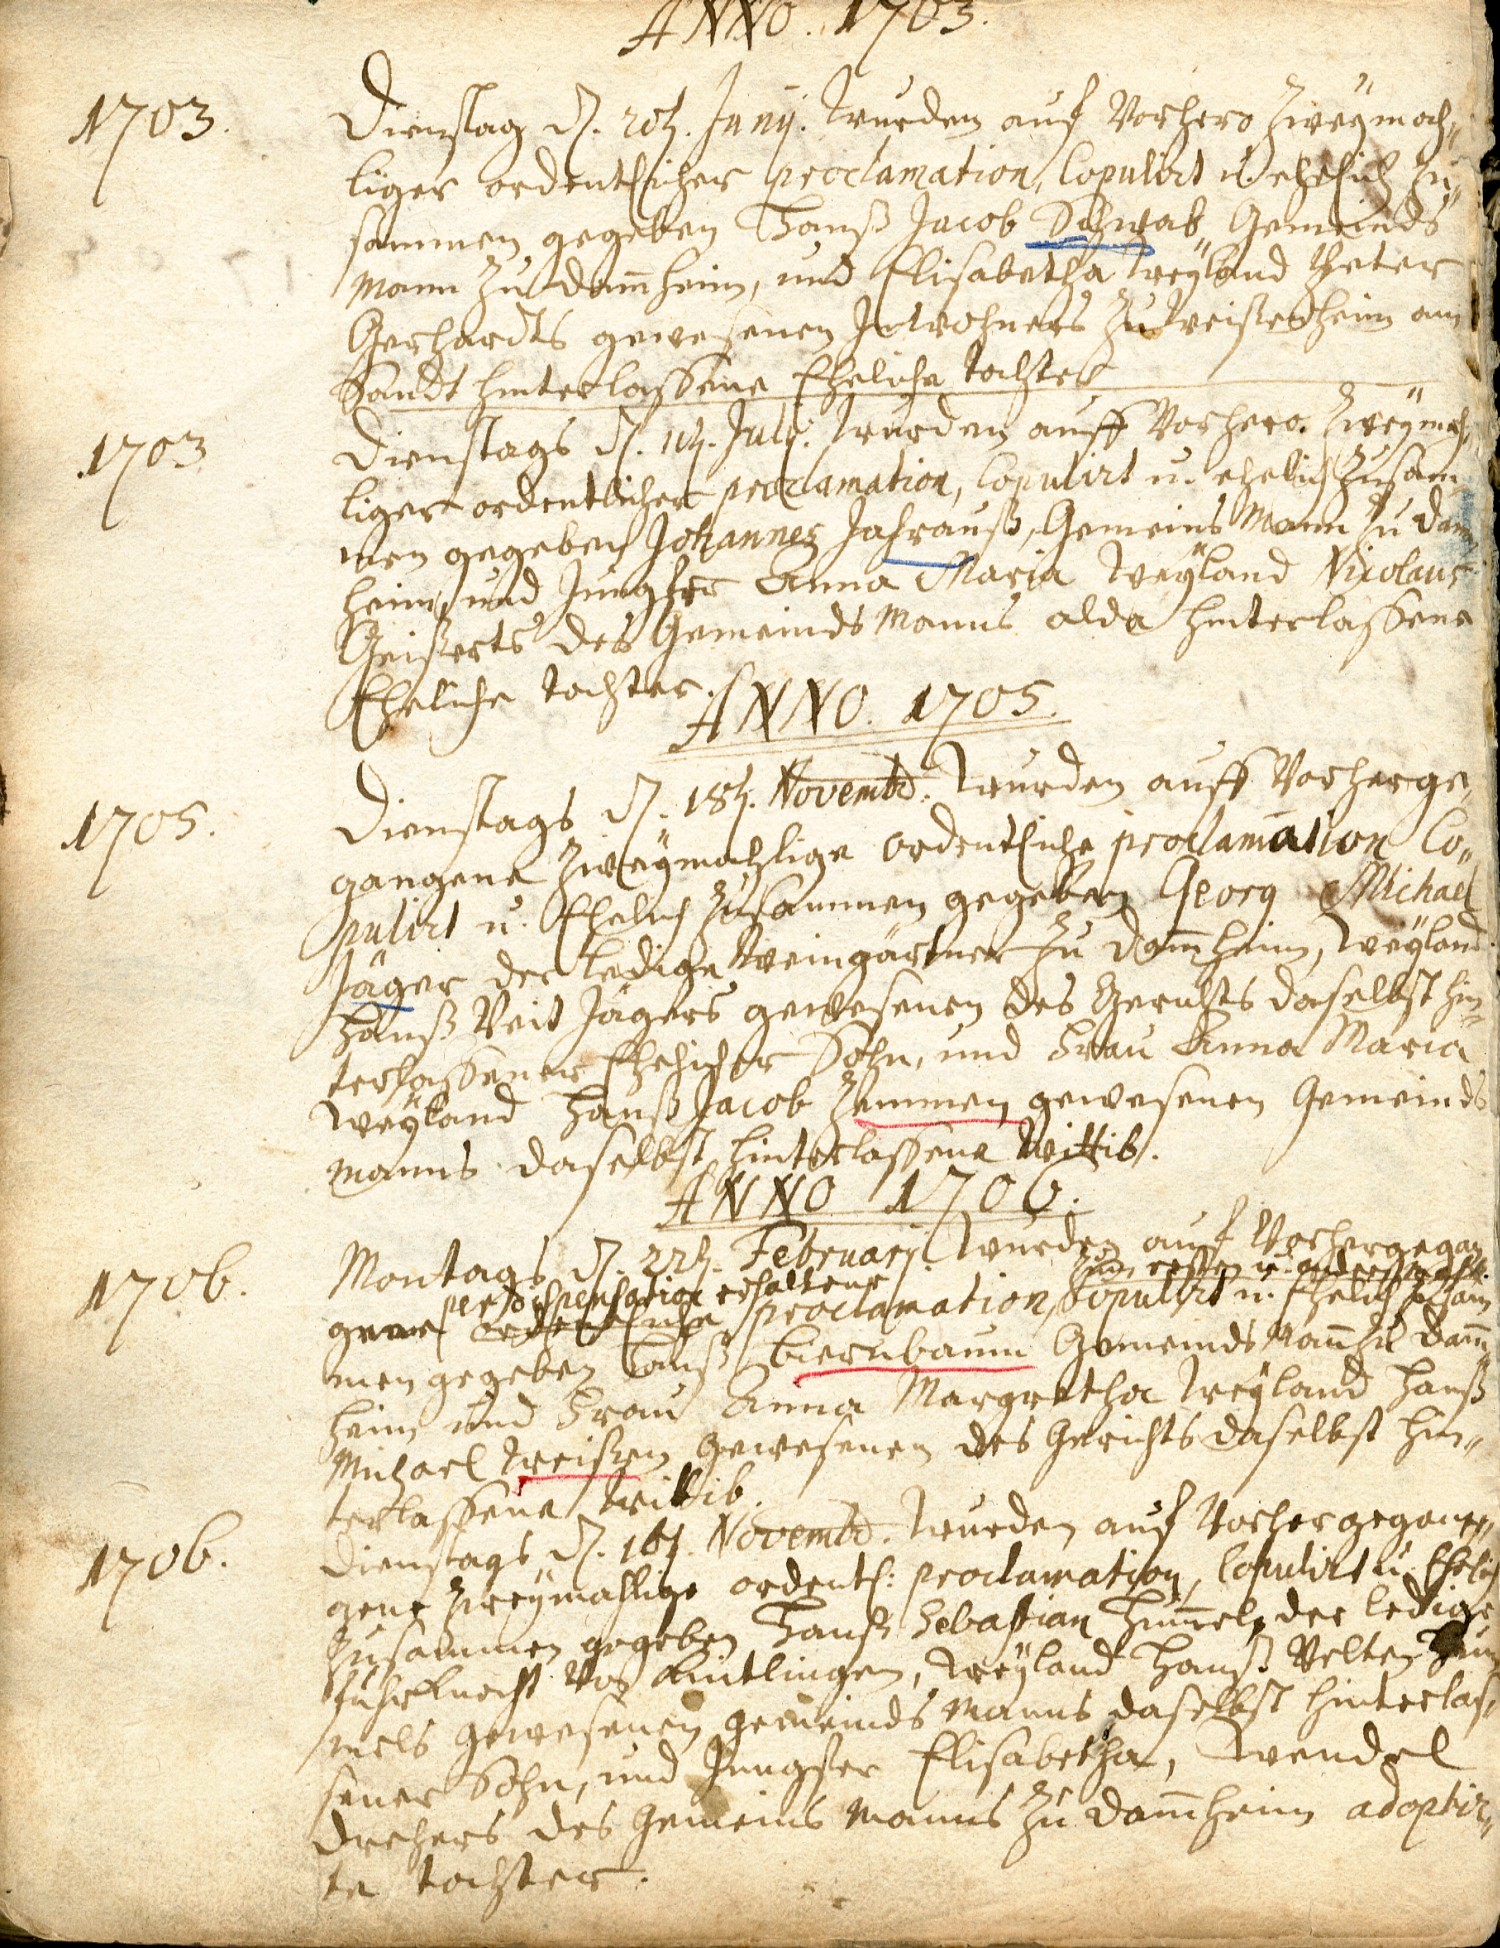 ANNO. 1703.
1703. Dienstag d. 20t. Junij. wurden auf Vorhero zweÿmah,,
liger ordentlicher proclamation, Copulirt u. ehelich zu,,
sammen gegeben Hanß Jacob Schwab Gemeinds
Mann zu Dam̄heim, und Elisabetha weÿland Peter
Gerhardts gewesenen Inwohners zu Weissenheim am
Sandt hinterlassene Eheliche tochter
1703 Dienstags d. July. wurden auff Vorhero. zweÿmah,,
liger ordentlicher proclamation, Copulirt u. ehelich zusam
men gegeben Johannes Jahrauß, Gemeins Mann zu Dam
heim, und Jungfer Anna Maria weÿland Nicolaus
Geißerts des Gemeinds Manns alda hinterlassene
Eheliche tochter.
ANNO. 1705.
1705. Dienstags d. 18t. Novembr. wurden auff Vorherge,,
gangene zweÿmahlige ordentliche proclamation Co,,
pulirt u. Ehelich zusammen gegeben Georg Michael
Jäger der ledige Weingärtner zu Dam̄heim, weÿland
Hanß Veit Jägers gewesenen des Gerichts daselbst hin,,
terlassener Ehelicher Sohn, und Frau Anna Maria
weÿland Hanß Jacob Zemmen gewesenen Gemeinds
manns daselbst hinterlassene Wittib.
ANNO 1706.
1706. Montags d. 22t. Februarj. wurden auf Vorhergegan
per dispensation erhaltene zum ersten u. andern mahl
gene ordentliche proclamation, Copulirt u. Ehelich zusam
men gegeben Hanß Biernbaum Gemeinds Mann zu Dam̄
heim und Frau Anna Margretha weÿland Hanß
Michael Weißen gewesenen des Gerichts daselbst hin,,
terlassene Wittib.
1706. Dienstags d. 16t. Novembr. wurden auf Vorhergegan,,
gene zweÿmahlige ordentl: proclamation, Copulirt u. Ehelich
zusammen gegeben Hanß Sebastian Him̄el, der ledige
fuhrknecht von weÿland Hanß Velten Him
mels gewesenen gemeinds Manns daselbst hinterlas,,
sener Sohn, und Jungfer Elisabetha, Wendel
Drehers des Gemeins Manns zu Dam̄heim adoptir,,
te tochter.